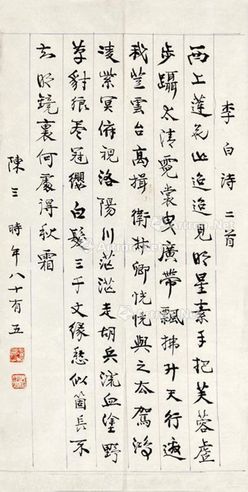 李白诗二首
西上蓮花山迢迢見明星素手把芙蓉虛
步躡太清霓裳曳廣帶飄拂升天行邀
我登雲台高揖衛叔卿恍恍與之去駕鴻
凌紫冥俯視洛陽川茫茫走胡兵流血塗野
草豺狼盡冠纓白髮三千丈緣愁似箇長不
知明鏡裏何處得秋霜
陳三 時年八十有五